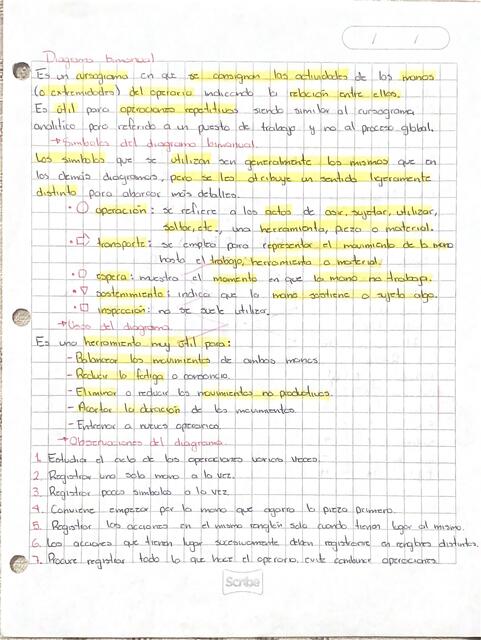 / /
Diagrama bimanual
Es un cursograma en que se consignan las actividades de las manos
(o extremidades) del operario indicando la relación entre ellas.
Es útil para operaciones repetitivas siendo similar al cursograma
analítico pero referido a un puesto de trabajo y no al proceso global.
→ Símbolos del diagrama bimanual.
Los símbolos que se utilizan son generalmente los mismos que en
los demás diagramas, pero se les atribuye un sentido ligeramente
distinto para abarcar más detalles.
• ○ operación: se refiere a los actos de asir, sujetar, utilizar,
soltar, etc., una herramienta, pieza o material.
• ⇨ transporte: se emplea para representar el movimiento de la mano
hasta el trabajo, herramienta o material.
• D espera: muestra el momento en que la mano no trabaja.
• ▽ sostenimiento: indica que la mano sostiene o sujeta algo.
• □ inspección: no se suele utilizar.
→ Usos del diagrama
Es una herramienta muy útil para:
- Balancear los movimientos de ambas manos
- Reducir la fatiga o cansancio.
- Eliminar o reducir los movimientos no productivos.
- Acortar la duración de los movimientos.
- Entrenar a nuevos operarios.
→ Observaciones del diagrama.
1. Estudiar el ciclo de las operaciones varias veces.
2. Registrar una sola mano a la vez.
3. Registrar pocos símbolos a la vez.
4. Conviene empezar por la mano que agarra la pieza primero.
5. Registrar las acciones en el mismo renglón solo cuando tienen lugar al mismo.
6. Las acciones que tienen lugar sucesivamente deben registrarse en renglones distintos.
7. Procure registrar todo lo que hace el operario, evite combinar operaciones.
Scribe